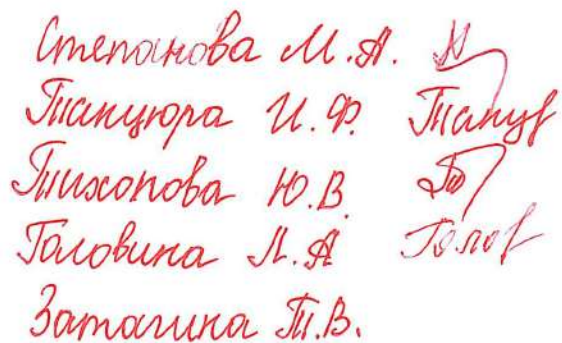 Степанова М.А.
Танцюра И.Ф. Танцу
Тихонова Ю.В.
Головина Л.А Голов
Затагина Т.В.